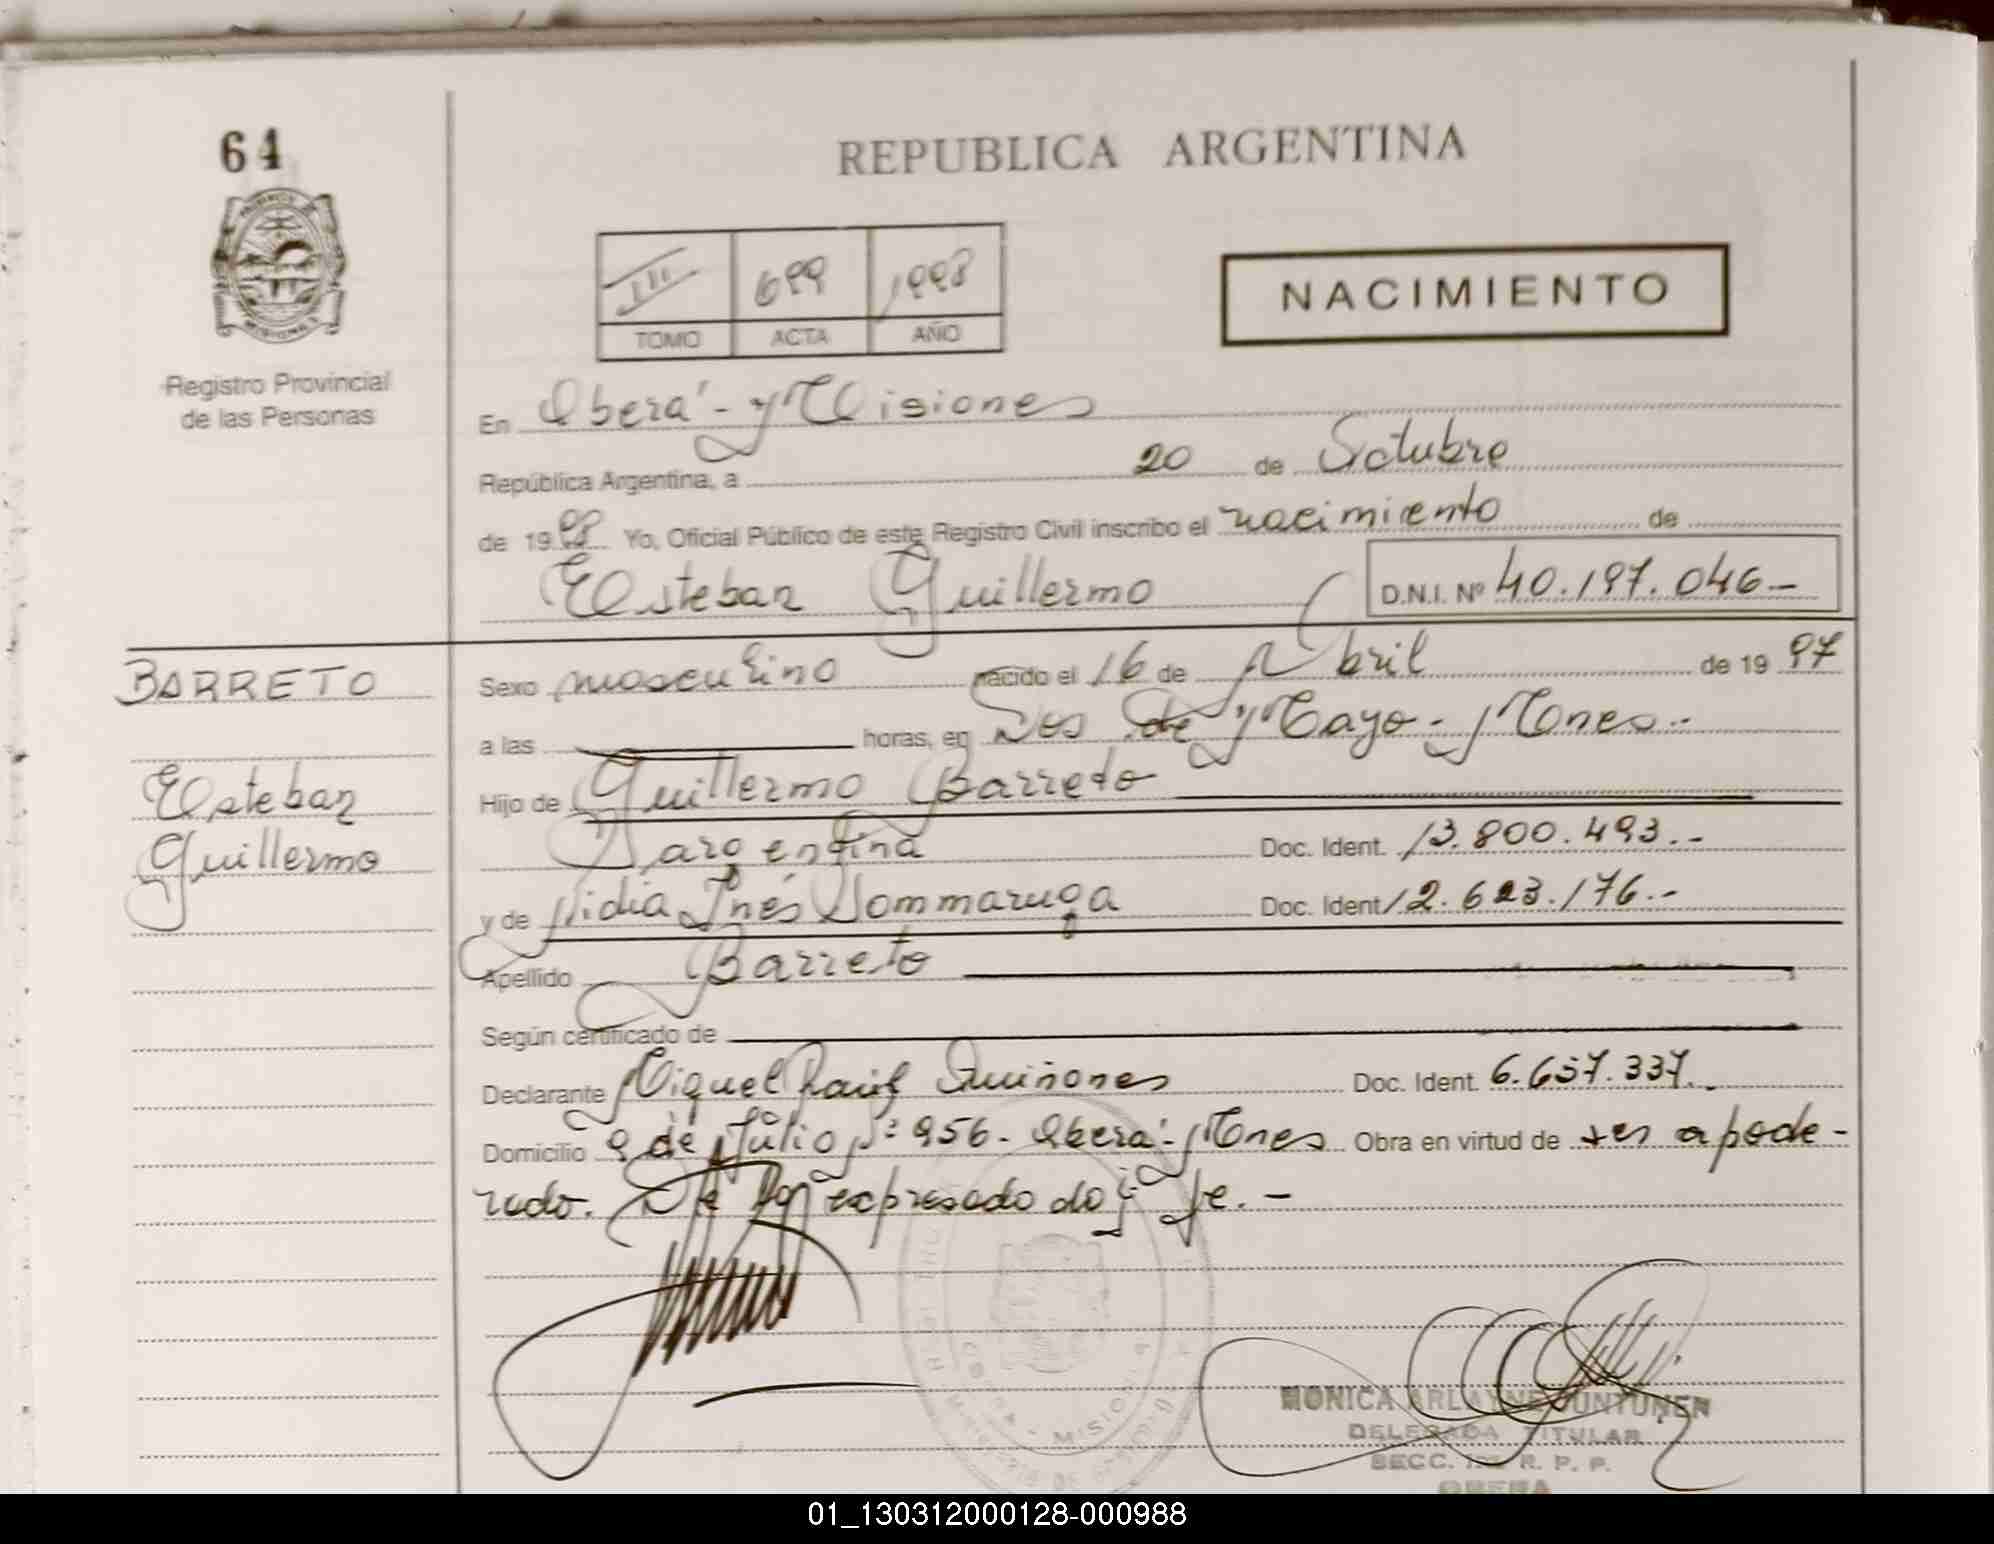 64
REPUBLICA ARGENTINA
III 699 1998
TOMO ACTA AÑO
NACIMIENTO
Registro Provincial
de las Personas
En Oberá - Misiones
República Argentina, a 20 de Octubre
de 1998 Yo, Oficial Público de este Registro Civil inscribo el nacimiento de
Esteban Guillermo D.N.I. Nº 40.197.046-
BARRETO
Esteban
Guillermo
Sexo masculino nacido el 16 de Abril de 1997
a las horas, en Dos de Mayo - Mnes.-
Hijo de Guillermo Barreto
argentina Doc. Ident. 13.800.493.-
y de Nidia Inés Sommaruga Doc. Ident 12.623.176.-
Apellido Barreto
Según certificado de
Declarante Miguel Raúl Quiñones Doc. Ident. 6.657.337.-
Domicilio 9 de Julio Nº 956 - Oberá - Mnes Obra en virtud de ser apode-
rado. De lo expresado doy fe.-
MONICA ARLAYNE JUNTUNEN
DELEGADA TITULAR
SECC. R. P. P.
OBERA
01_130312000128-000988